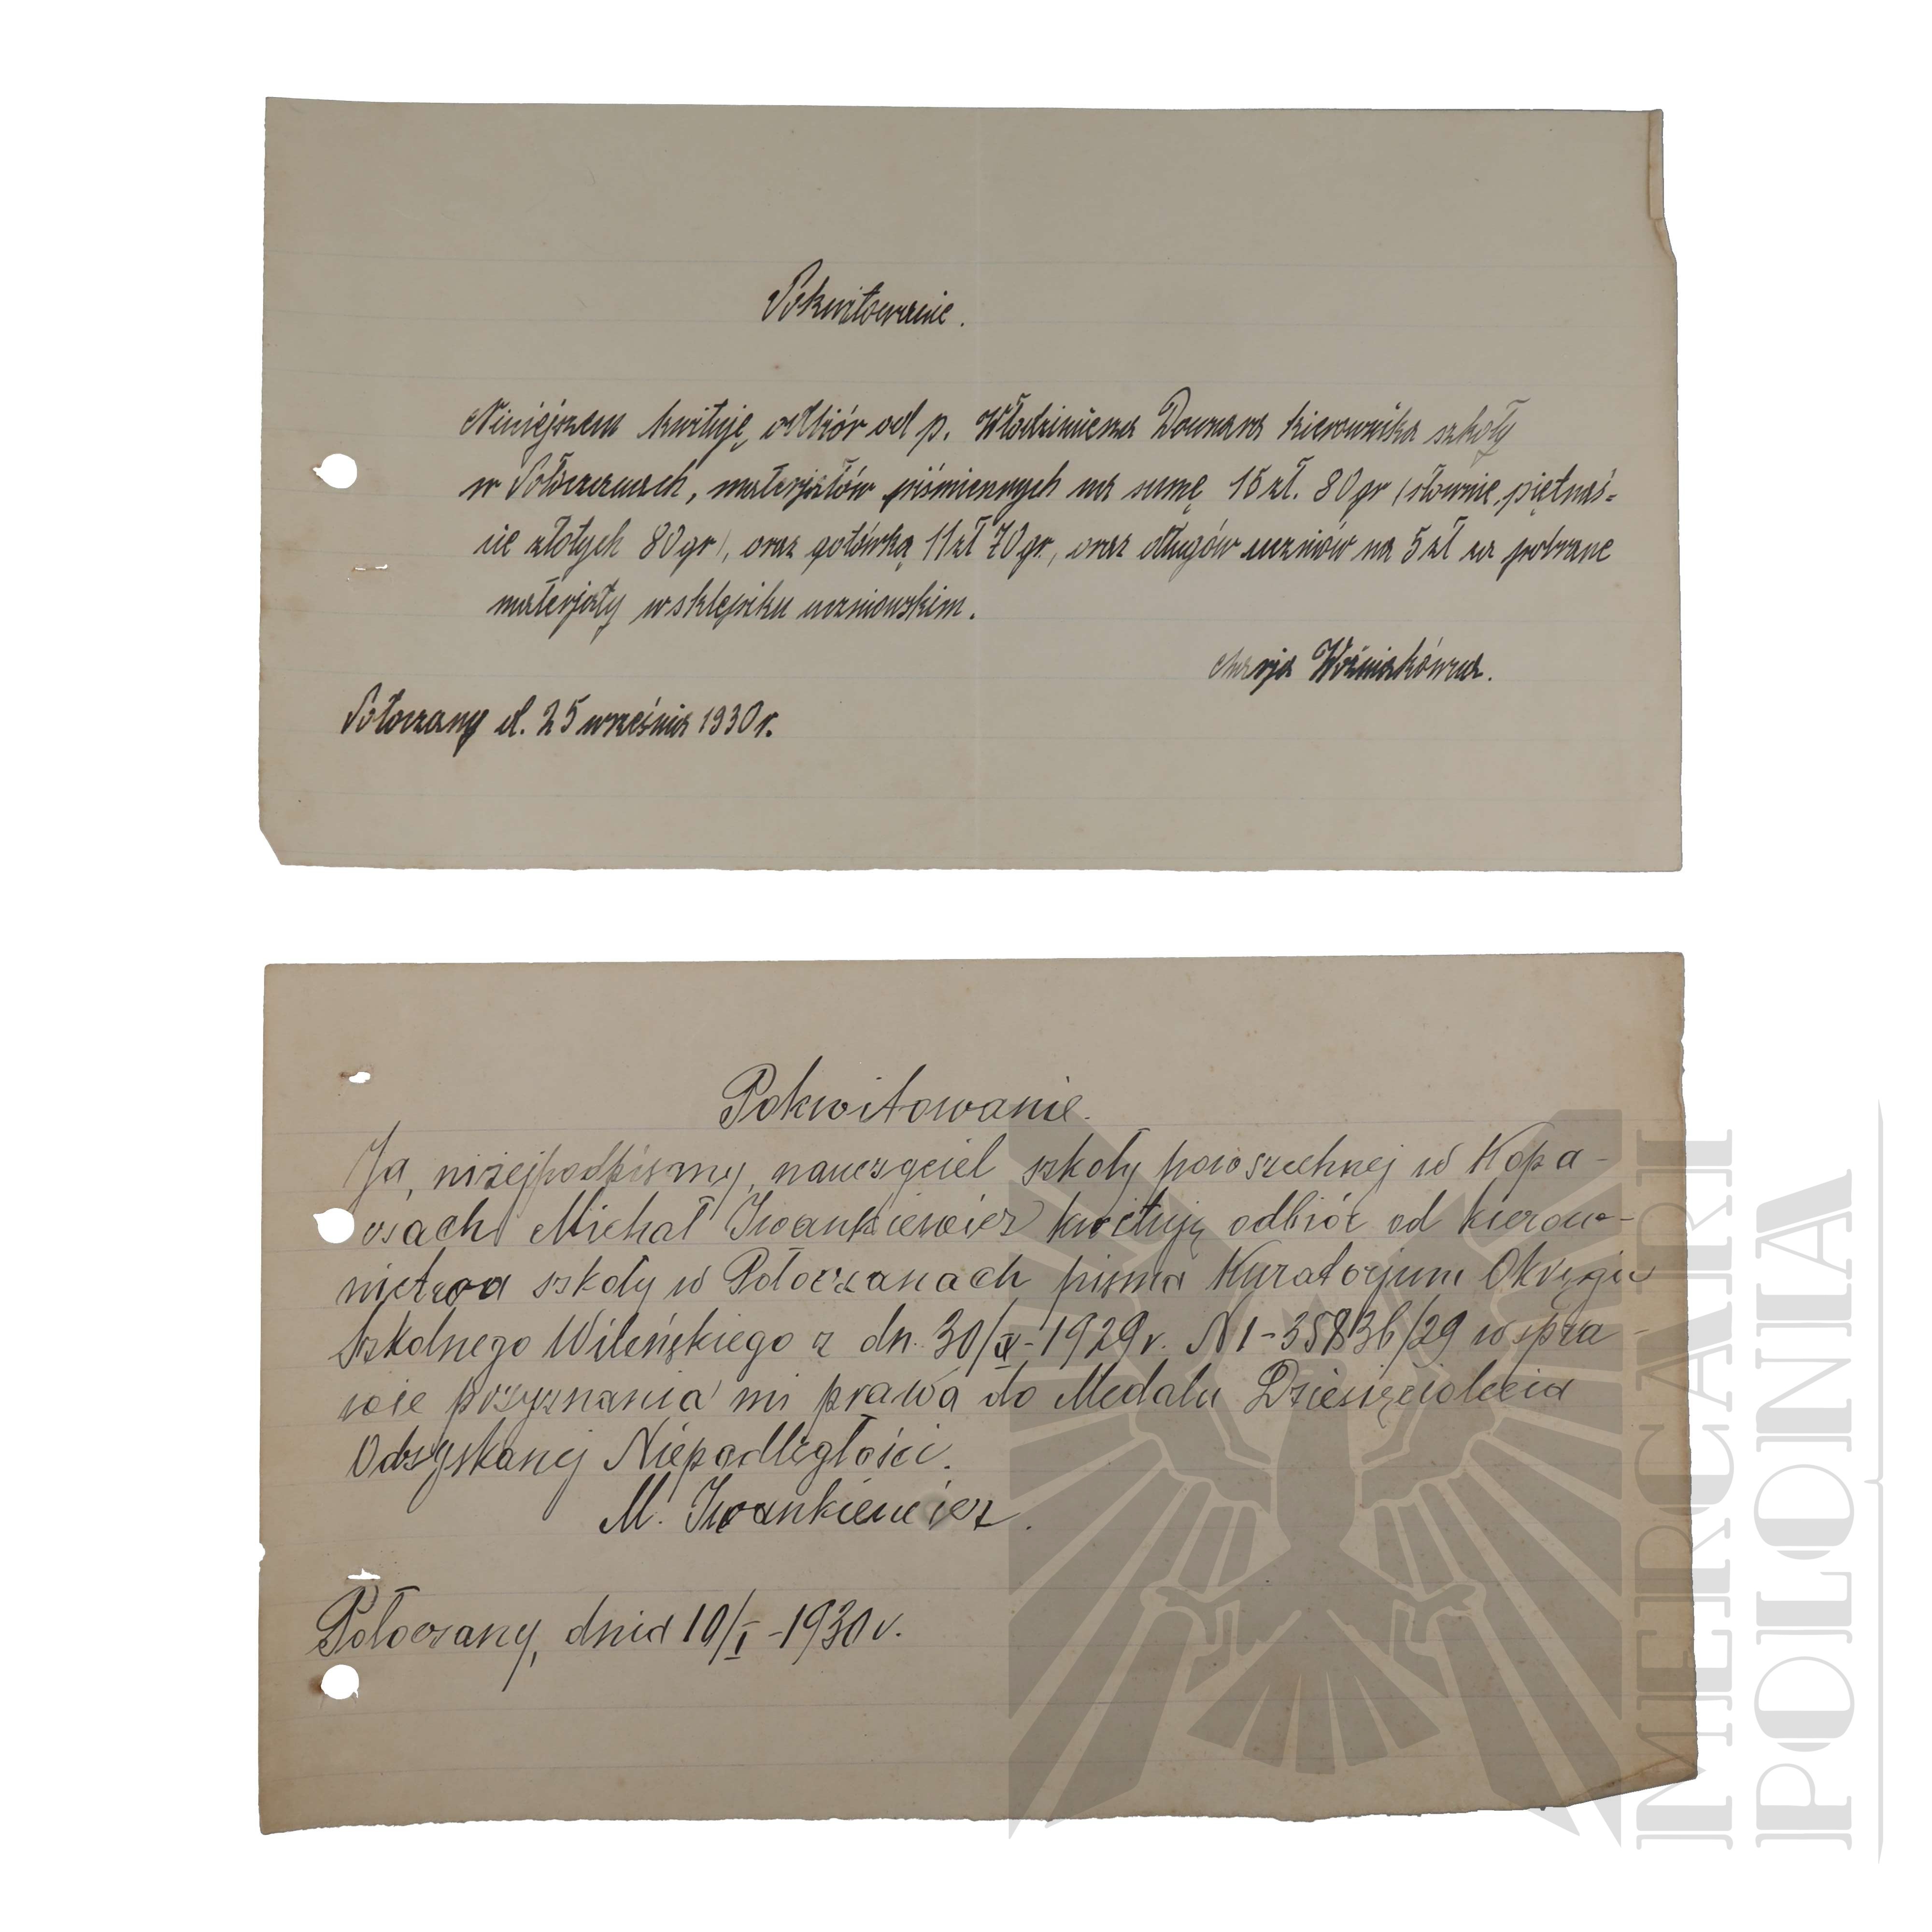 Pokwitowanie.
Niniejszem kwituję odbiór od p. Włodzimierza Downara kierownika szkoły
w Połoczanach, materjałów piśmiennych na sumę 15 zł. 80 gr (słownie piętnaś-
cie złotych 80 gr), oraz gotówką 11 zł 70 gr., oraz długów uczniów na 5 zł za pobrane
materjały w sklepiku uczniowskim.
Marja Woźniakówna.
Połoczany d. 25 września 1930 r.
Pokwitowanie.
Ja, niżejpodpisany, nauczyciel szkoły powszechnej w Kopa-
czach Michał Iwankiewicz kwituję odbiór od kierow-
nictwa szkoły w Połoczanach pisma Kuratorjum Okręgu
Szkolnego Wileńskiego z dn. 30/ -1929 r. N I-35836/29 w spra-
wie przyznania mi prawa do Medalu Dziesięciolecia
Odzyskanej Niepodległości.
M. Iwankiewicz.
Połoczany, dnia 10/I -1930 r.
IMERCARI
POLONIA